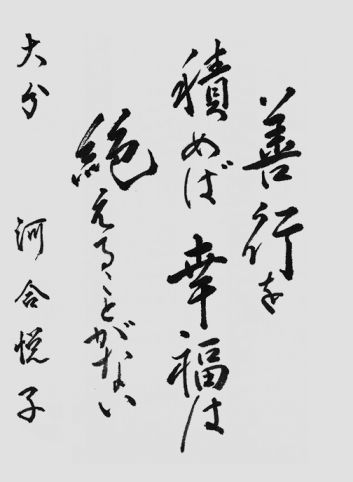 善行を
積めば幸福は
絶えることがない
大分 河合悦子